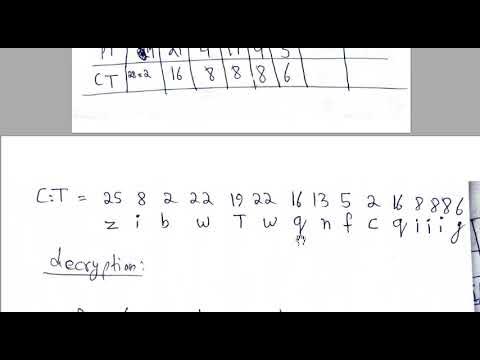 CT 28=2 16 8 8 8 6
C:T = 25 8 2 22 19 22 16 13 5 2 16 8 8 8 6
z i b w T w q n f c q i i i g
decryption: